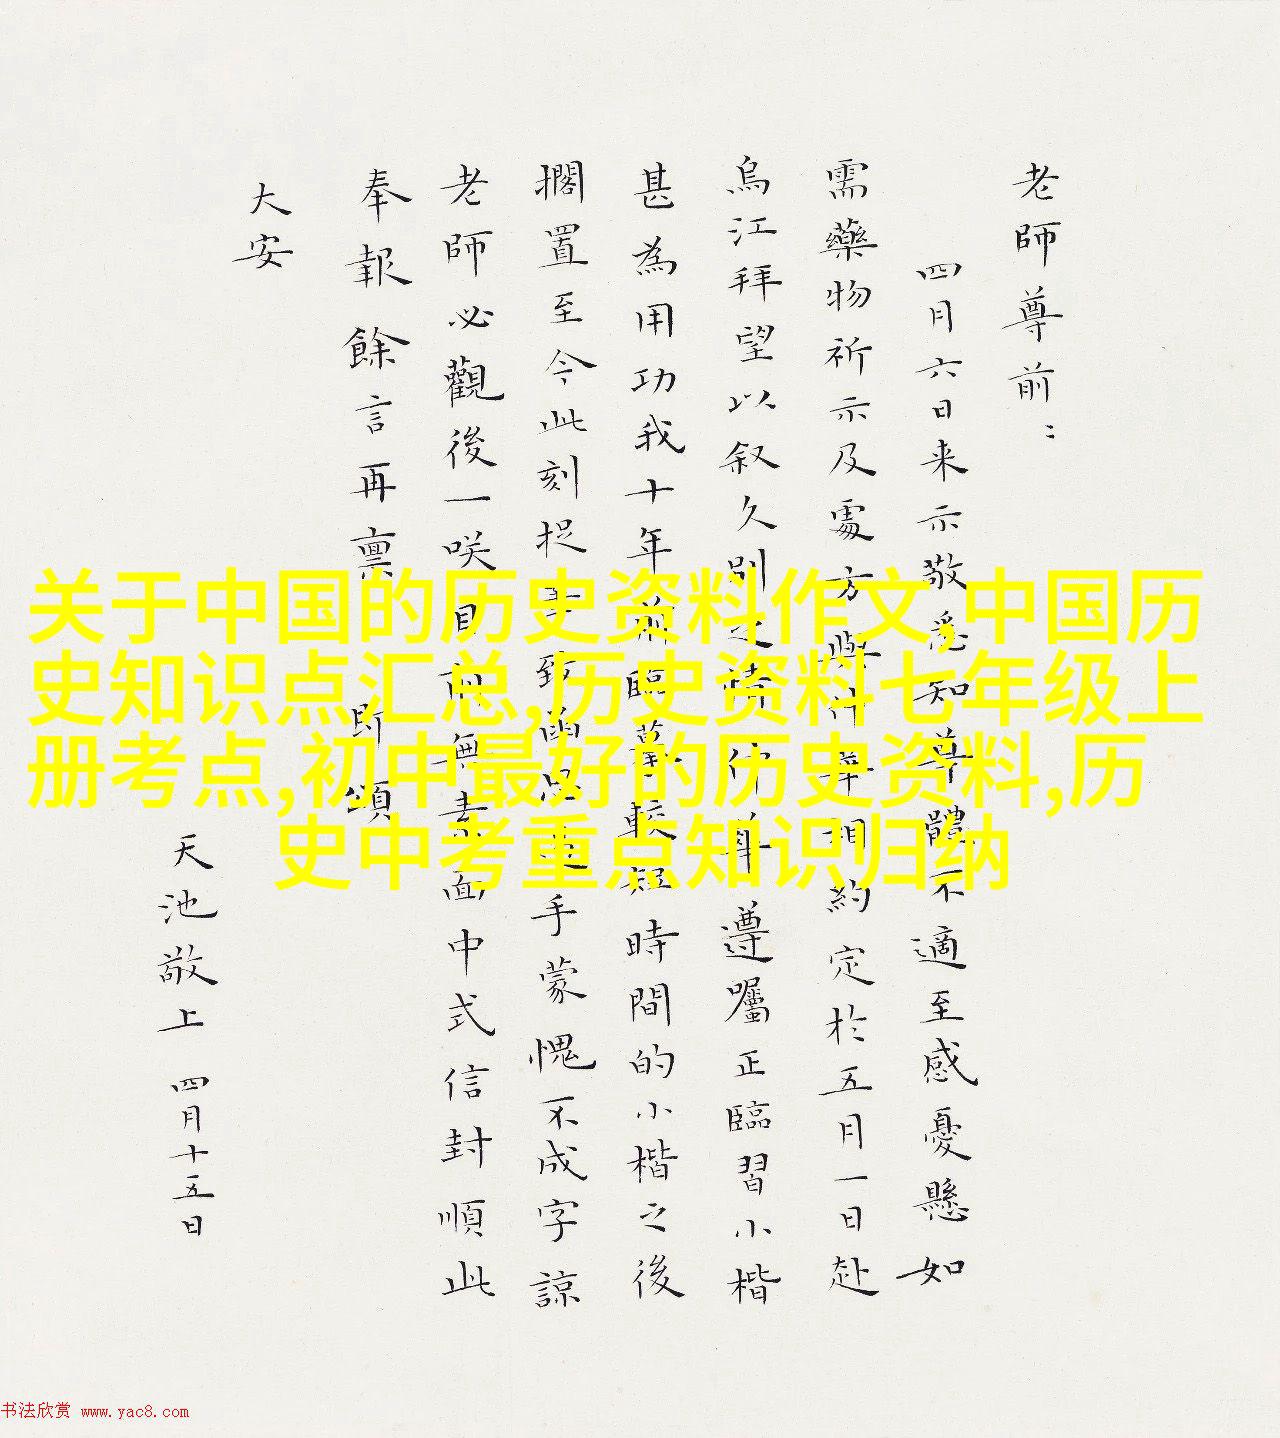 老師尊前：
四月六日来示敬悉知尊體不適至感憂懸如
需藥物祈示及處方與計華相約定於五月一日赴
烏江拜望以叙久別之情作華遵囑正臨習小楷
甚為用功我十年前臨摹較短時間的小楷之後
擱置至今此刻捉筆致函
手蒙愧不成字諒
老師必觀後一咲目前無素面中式信封順此
奉報餘言再禀
即頌
大安
天池敬上 四月十五日
关于中国的历史资料作文,中国历
史知识点汇总,历史资料七年级上
册考点,初中最好的历史资料,历
史中考重点知识归纳
书法欣赏 www.yac8.com